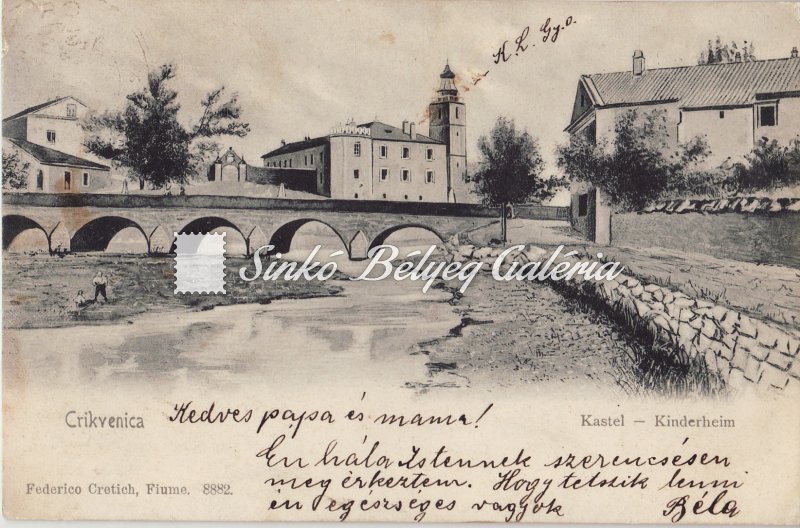 K. L. Gy. o.
Sinkó Bélyeg Galéria
Crikvenica
Kedves papsa és mama!
Kastel – Kinderheim
Én hála Istennek szerencsésen
meg érkeztem. Hogy telszik lenni
én egészséges vagyok Béla
Federico Cretich, Fiume. 8882.